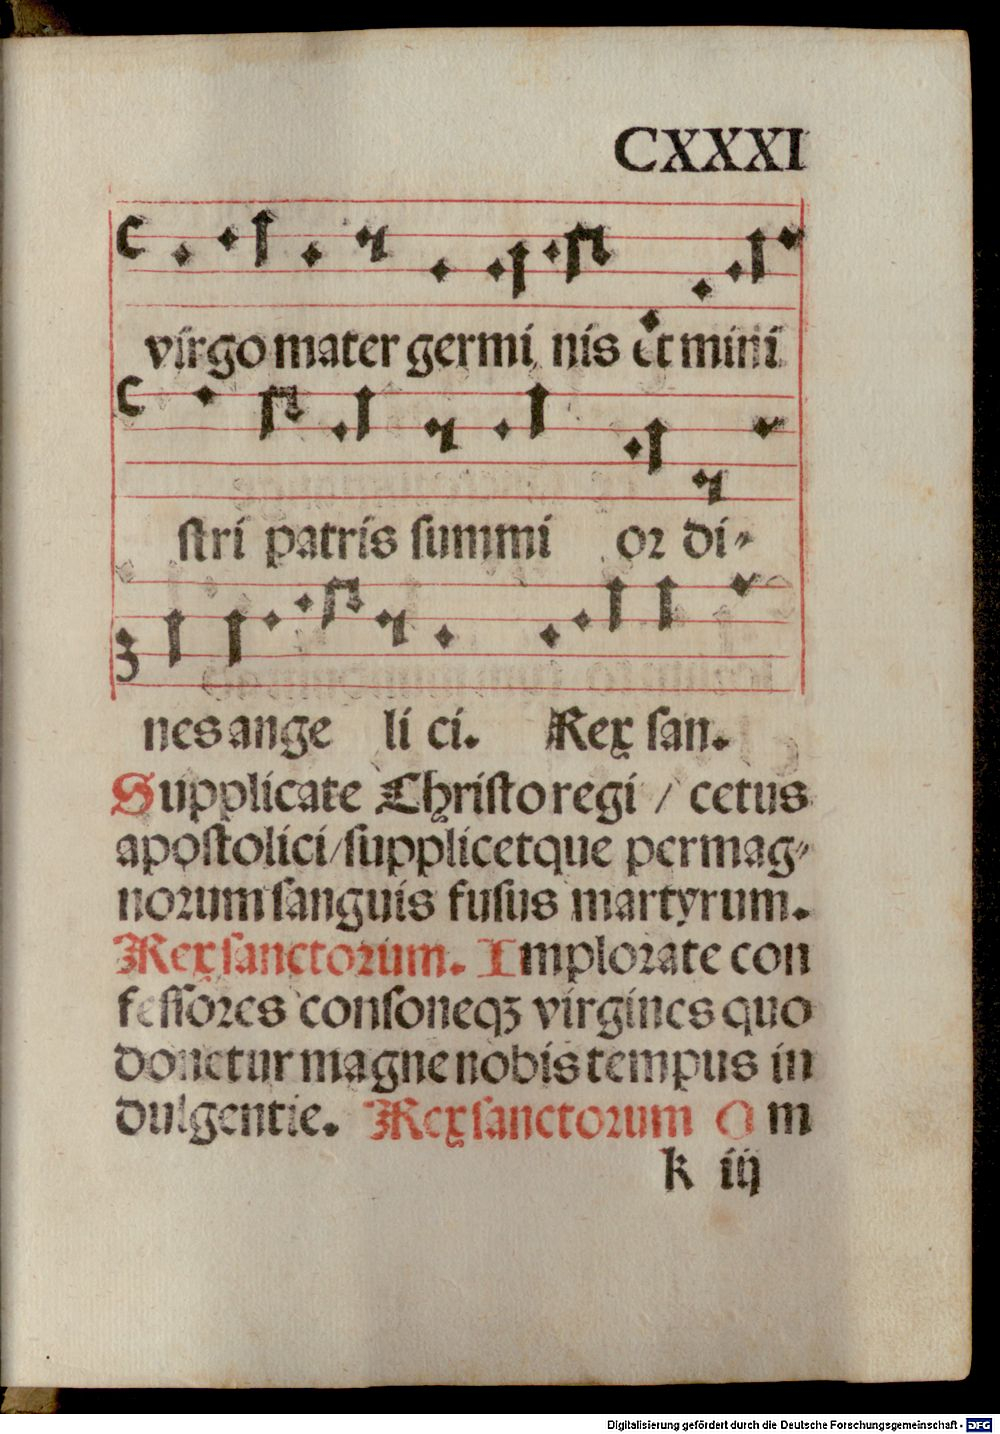 CXXXI
virgo mater germi nis et mini
stri patris summi or di-
nes ange li ci. Rex san.
Supplicate Christo regi / cetus
apostolici/supplicetque permag-
norum sanguis fusus martyrum.
Rex sanctorum. Implorate con
fessores consoneqꝫ virgines quo
donetur magne nobis tempus in
dulgentie. Rex sanctorum O m
k iij
Digitalisierung gefördert durch die Deutsche Forschungsgemeinschaft - DFG